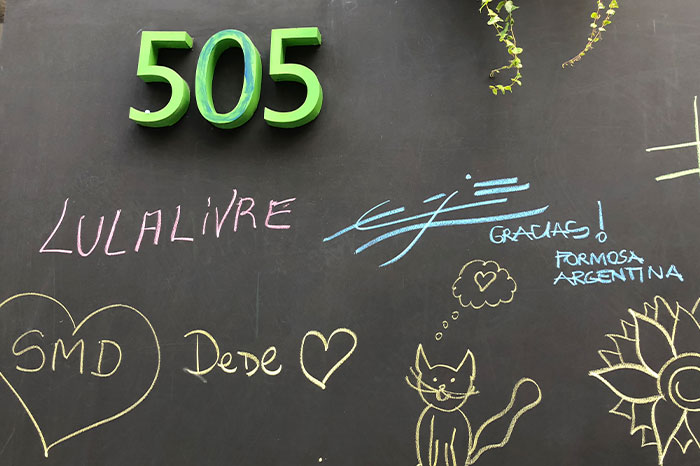 505
LULALiVRE
GRACIAS!
FORMOSA
ARGENTINA
SMD
DeDe